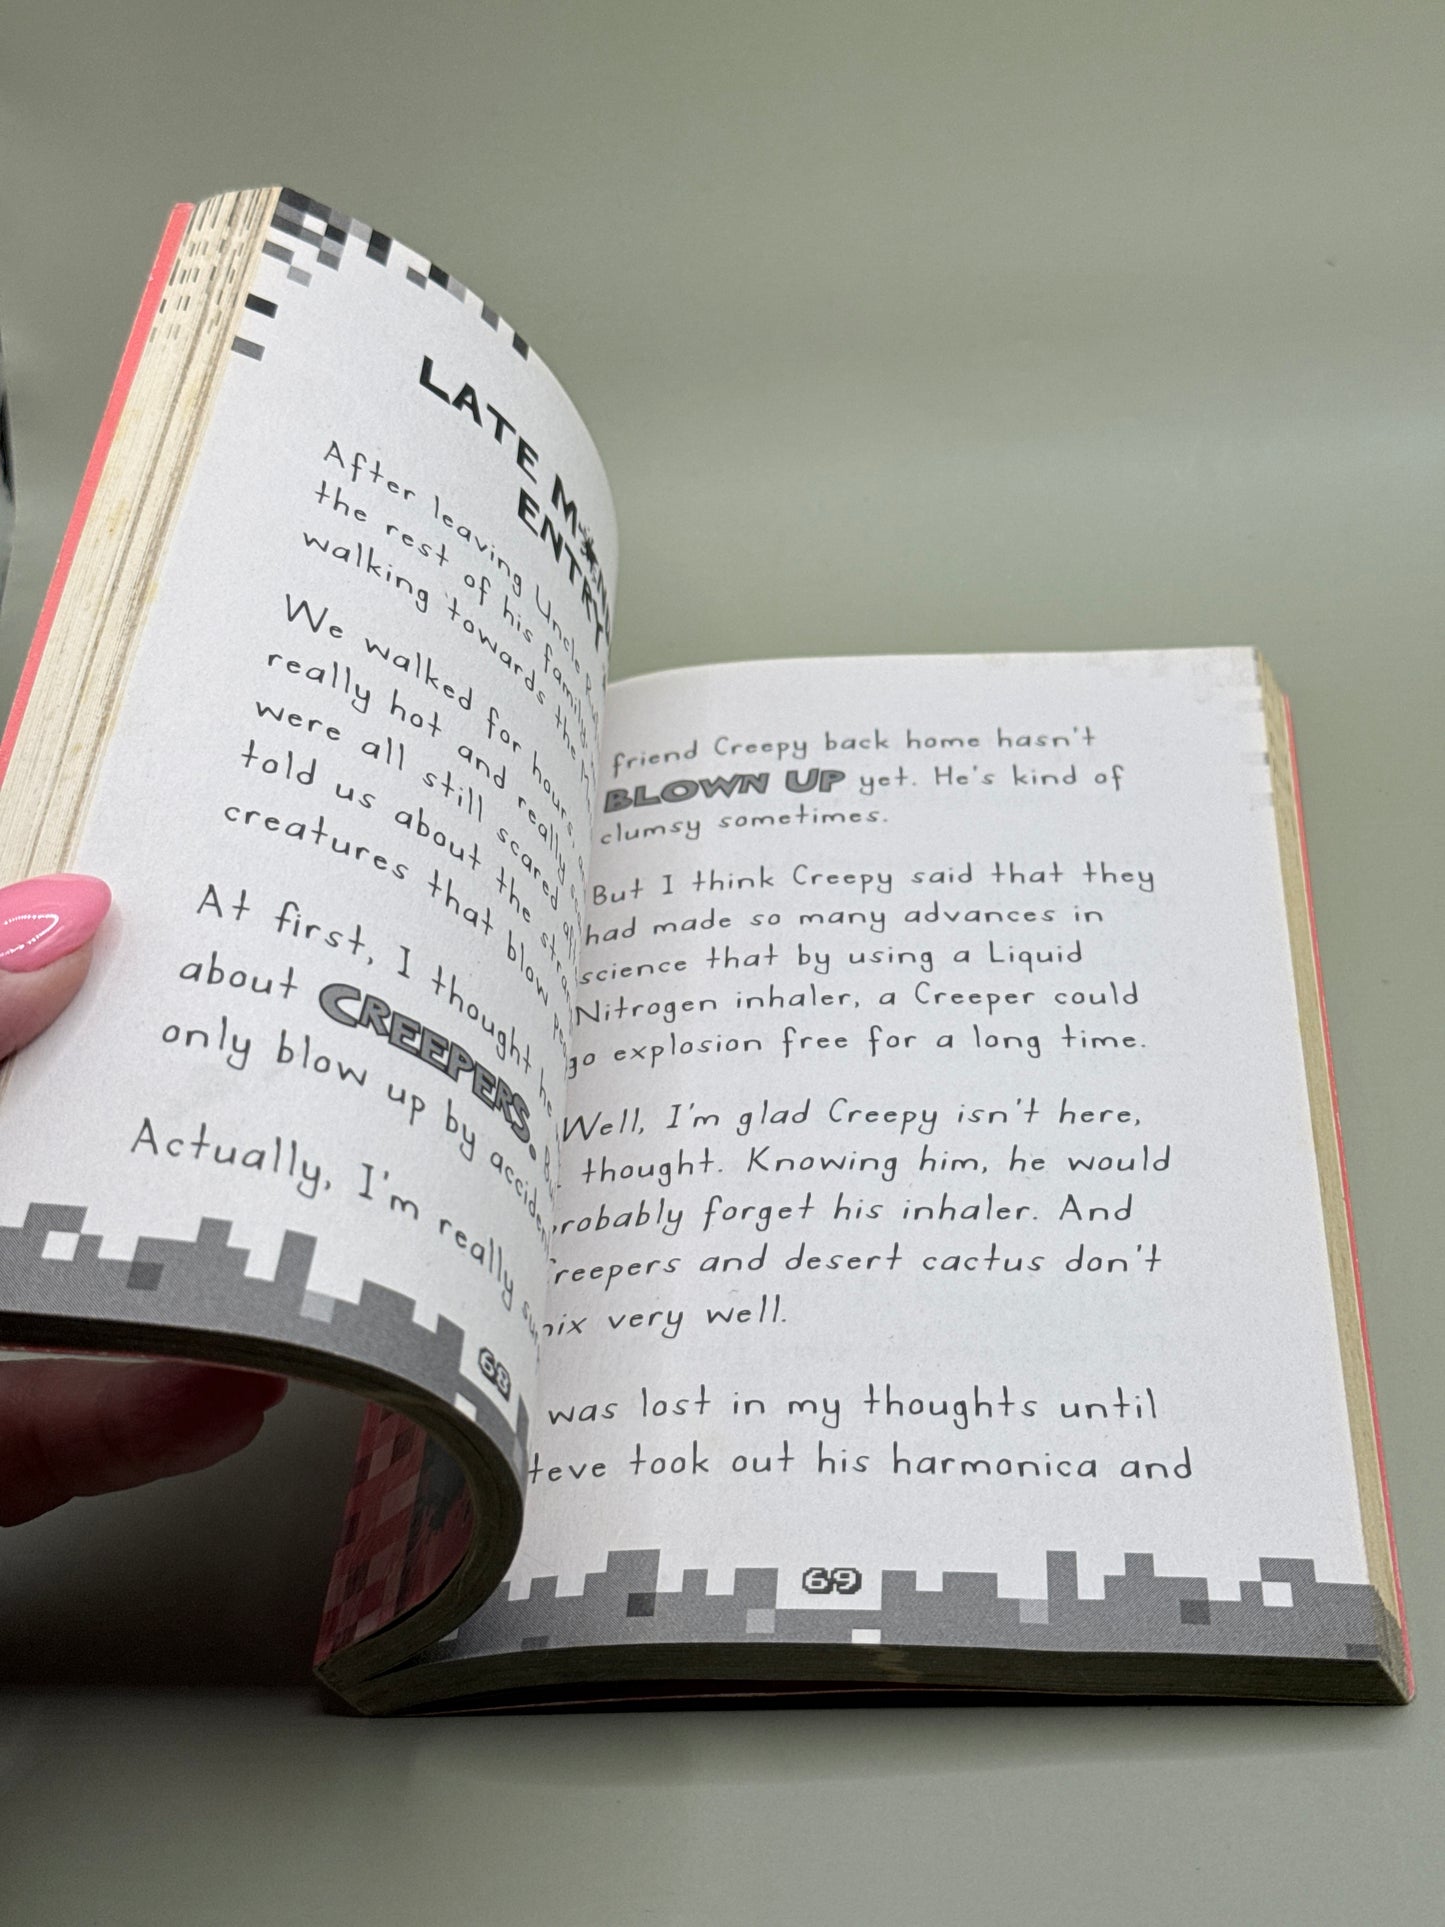 LATE
ENTRY
After leaving Uncle
the rest of his family,
walking towards the
We walked for hours.
really hot and really
were all still scared
told us about the
creatures that blow
At first, I thought he
about CREEPERS.
only blow up by
Actually, I'm really
68
friend Creepy back home hasn't
BLOWN UP yet. He's kind of
clumsy sometimes.
But I think Creepy said that they
had made so many advances in
science that by using a Liquid
Nitrogen inhaler, a Creeper could
go explosion free for a long time.
Well, I'm glad Creepy isn't here,
thought. Knowing him, he would
probably forget his inhaler. And
reepers and desert cactus don't
ix very well.
was lost in my thoughts until
teve took out his harmonica and
69